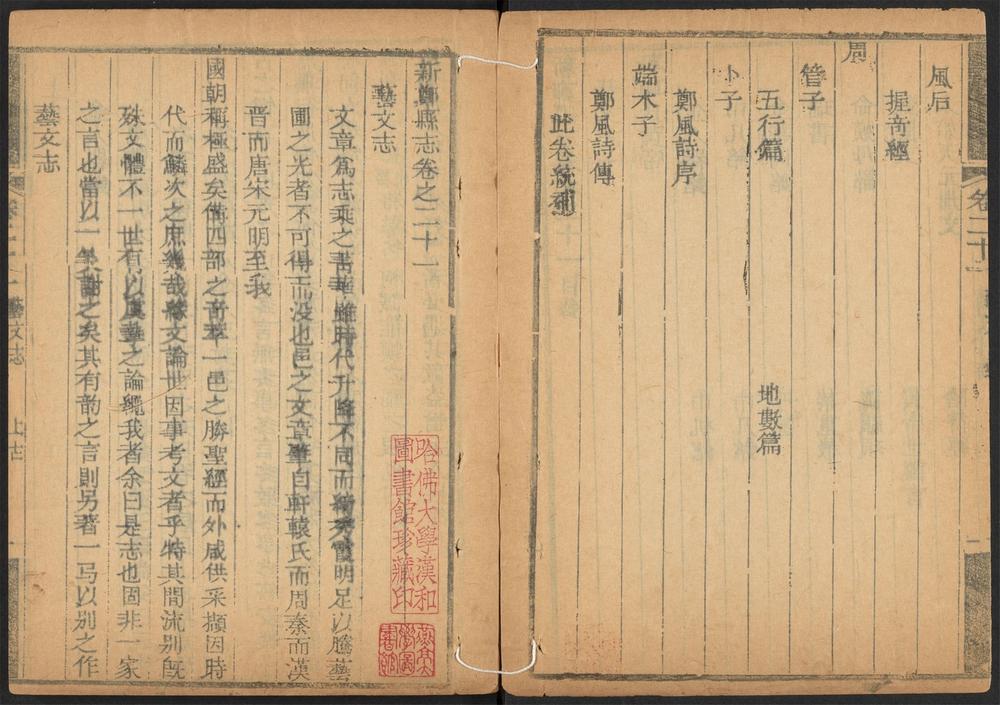 風后
握奇經
周
管子
五行篇 地數篇
卜子
鄭風詩序
端木子
鄭風詩傳
此卷統補
卷二十一
新鄭縣志卷之二十一
藝文志
文章爲志乘之菁華雖時代升降不同而綺秀霞明足以騰藝
圃之光者不可得而没也邑之文章肇自軒轅氏而周秦而漢
晉而唐宋元明至我
國朝稱極盛矣備四部之奇萃一邑之勝聖經而外咸供采擷因時
代而鱗次之庶幾哉緣文論世因事考文者乎特其間流别旣
殊文體不一世有以虞摯之論繩我者余曰是志也固非一家
之言也當以一笑謝之矣其有韵之言則另著一㢧以别之作
藝文志
藝文志 上古 一
哈佛大學漢和
圖書館珍藏印